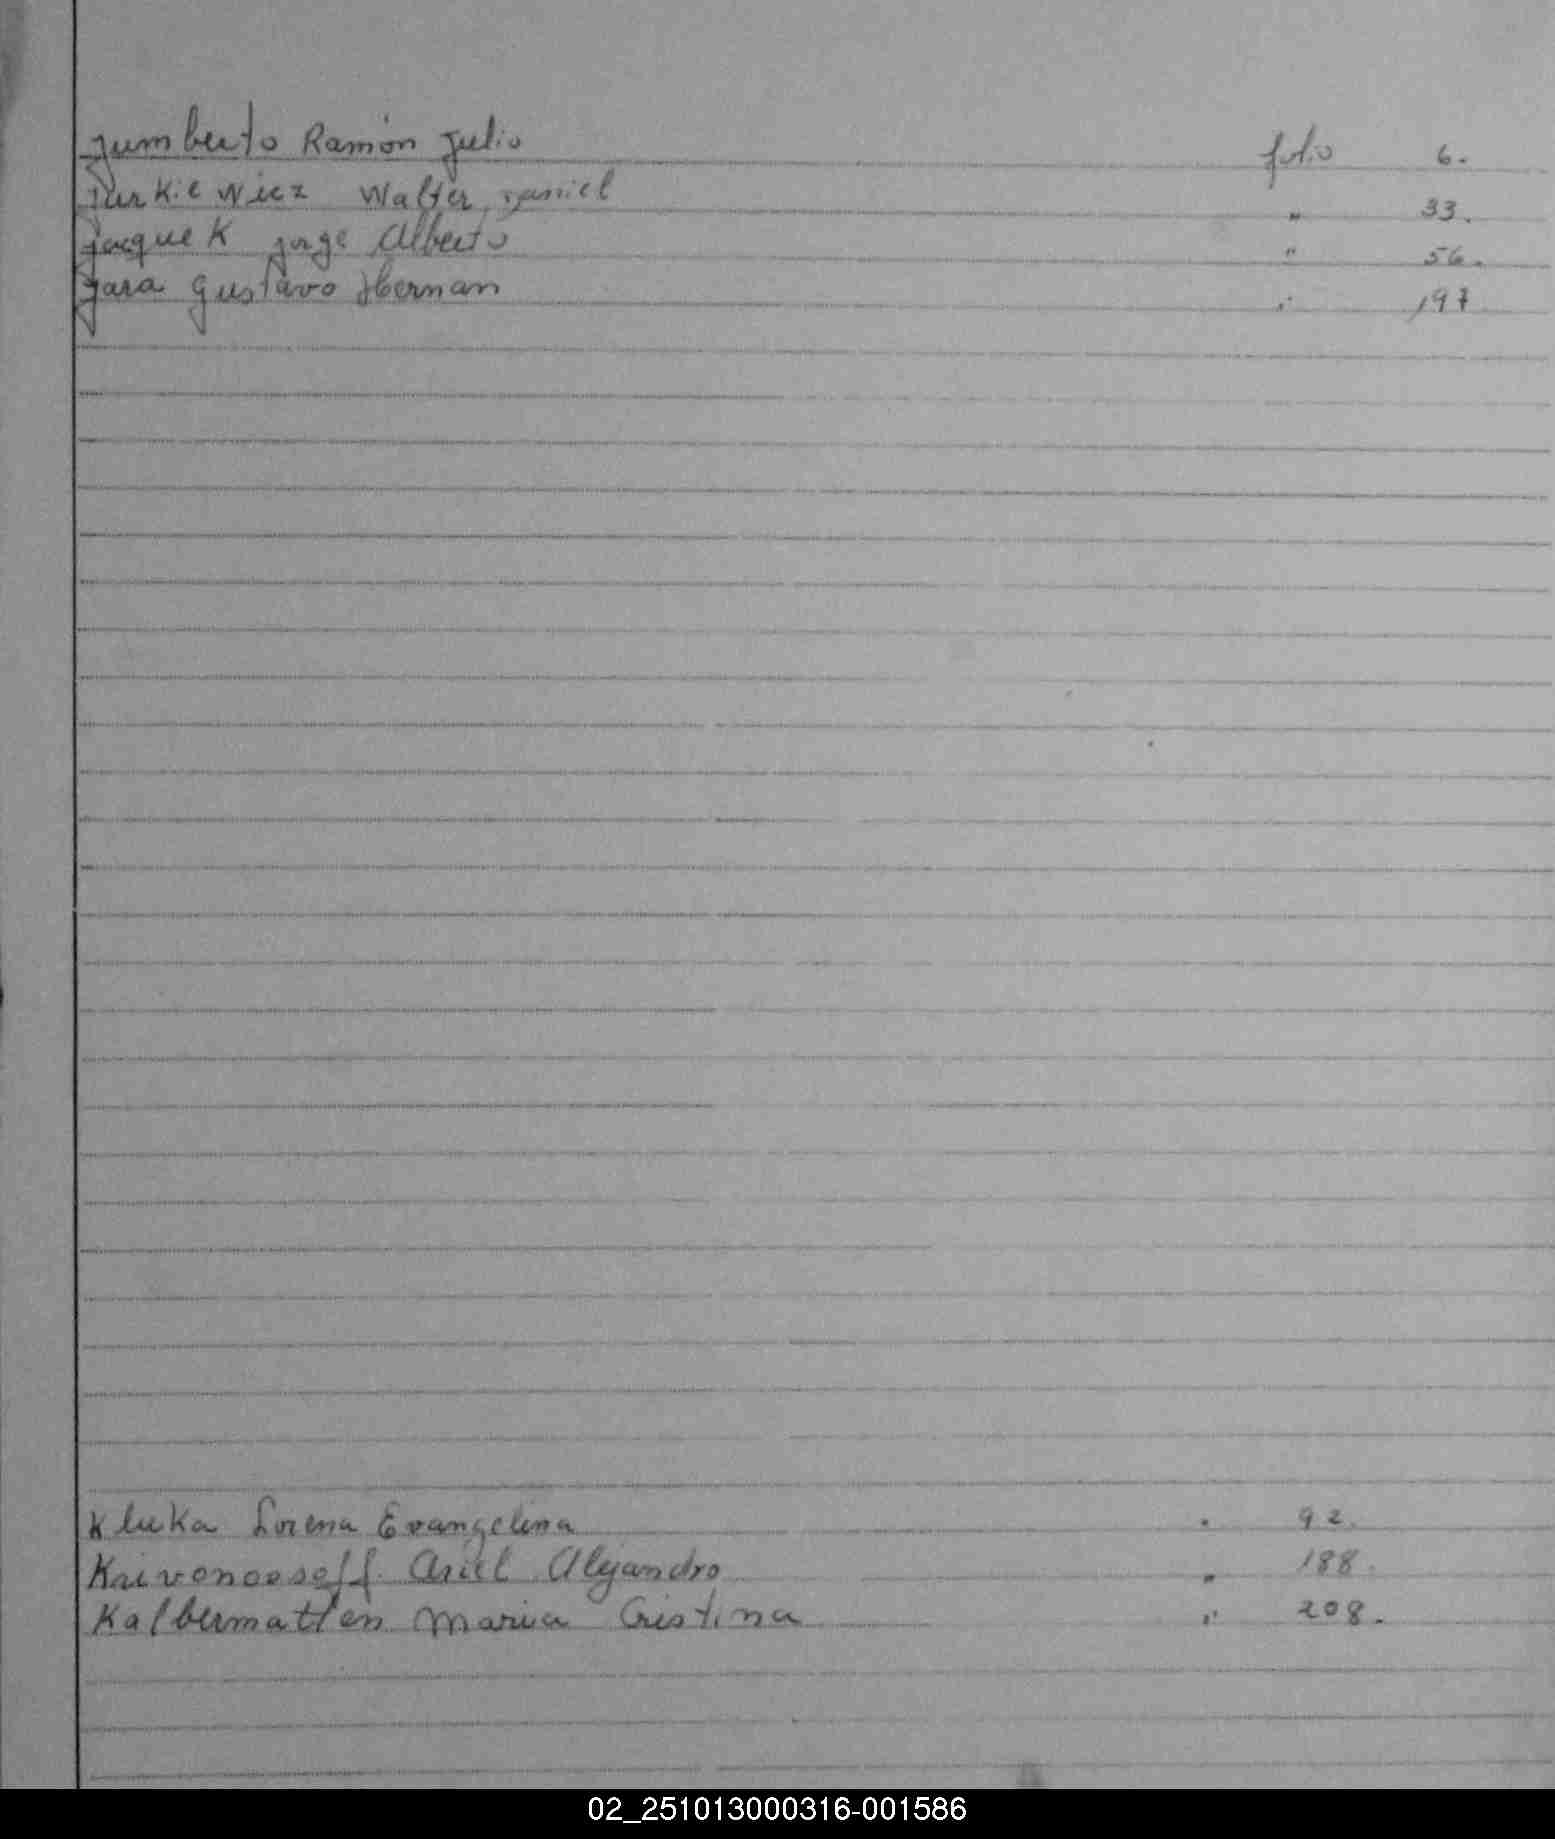 Jumberto Ramón Julio folio 6.
Jurkiewicz Walter Daniel " 33.
Jacquek Jorge Alberto " 56.
Jara Gustavo Hernan " 197
Kluka Lorena Evangelina " 92.
Krivonoosoff Ariel Alejandro " 188.
Kalbermatten Maria Cristina " 208.
02_251013000316-001586